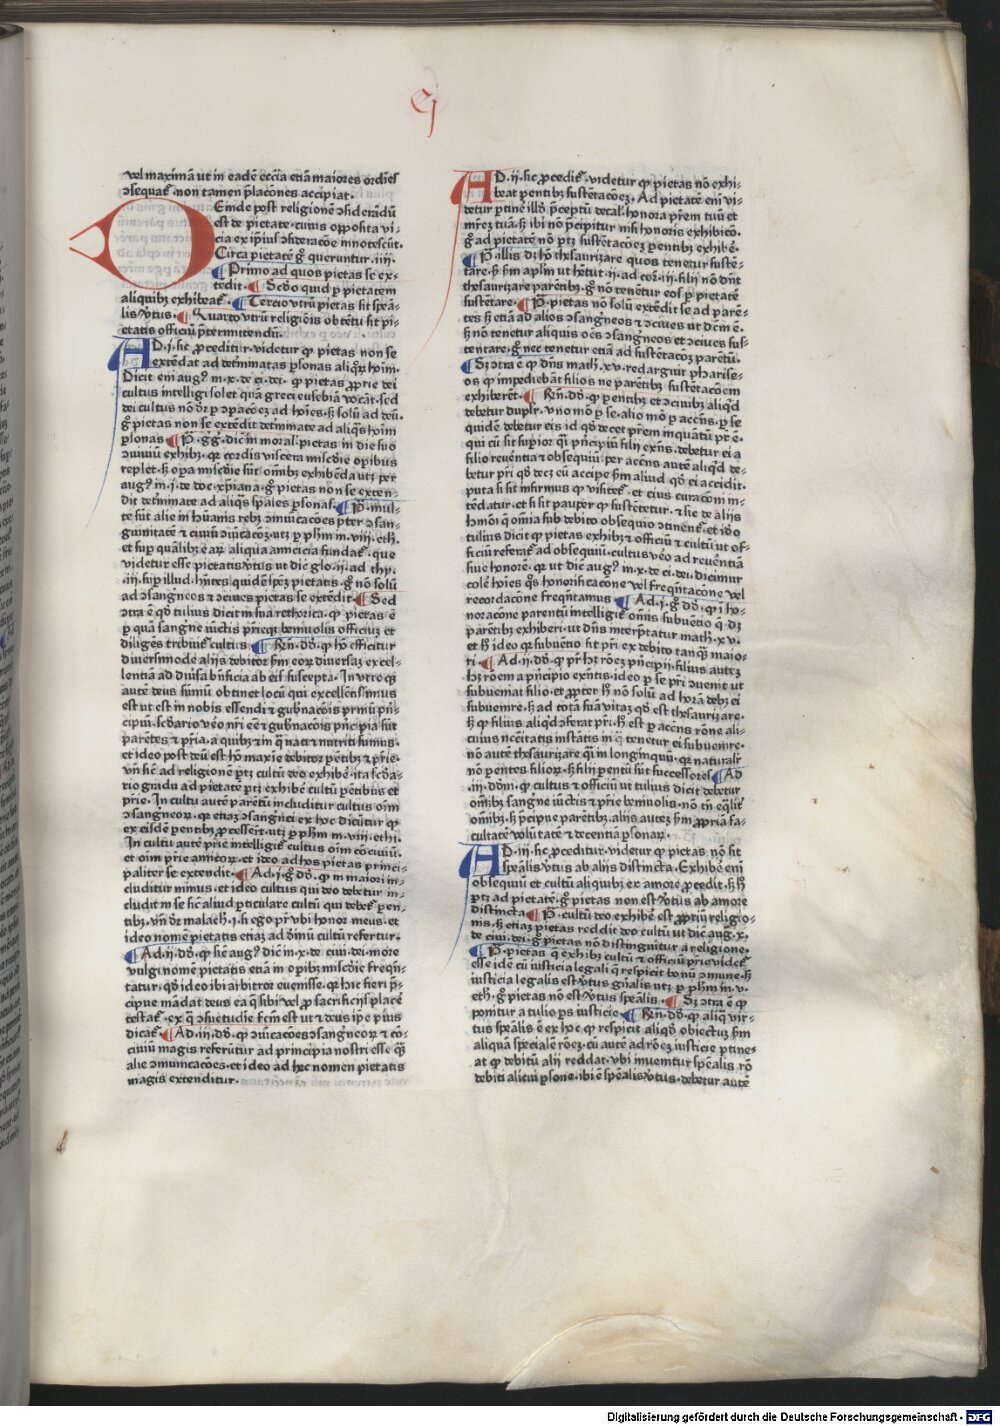 vel maximā ut in eadē eccīa etiā maiores ordīes
ꝯsequat᷑ · non tamen p̄lacōnes accipiat ·
DEinde post religionē ꝯsiderādū
est de pietate · cuius opposita vi-
cia ex ip̄ius ꝯsideracōe innotescūt.
Circa pietatē g̊ queruntur · iiij ·
Primo ad quos pietas se ex-
tēdit · Scd̄o quid ꝑ pietatem
aliquibꝫ exhibeat᷑ · Tercio vtrū pietas sit speā-
lis v̄tus · Quarto vtrū religiōis obtētu sit pi-
etatis officiū p̄termittendū.
AD · j · sic ꝓceditur · videtur ꝙ pietas non se
extēdat ad det̄minatas ꝑsonas aliqͦꝝ hoīm ·
Dicit eni augꝰ · m · x · de ci · dei · ꝙ pietas ꝓprie dei
cultus intelligi solet quā greci eusebiā vocāt · sed
dei cultus nō dr̄ ꝑ ꝯꝑacōeꝫ ad hoīes · sꝫ solū ad deū ·
g̊ pietas non se extēdit det̄minate ad aliqͣs hoīm
ꝑsonas · P̄ · gg · dic̄ in moral · pietas in die suo
ꝯuiuiū exhibꝫ · ꝙ cordis viscera mīscdie oꝑibus
replet · sꝫ oꝑa mīscdie sūt oīmbꝫ exhibēda utꝫ per
augꝰ · m · j · de doc · xp̄iana · g̊ pietas non se exten-
dit det̄minate ad aliqͣs sp̄ales ꝑsonas · P̄ · mul-
te sūt alie in hūanis rebꝫ ꝯmunicacōes p̄ter ꝯsan-
guinitatē ⁊ ciuiū ꝯiūcacōꝫ · utꝫ ꝑ ph̄m m · viii · eth ·
et suꝑ qualibꝫ eaꝝ aliqua amicicia fundat᷑ · que
videtur esse pietatis v̄tus ut dic̄ glo · ij · ad thy ·
iij · suꝑ illud · hn̄tes quidē spēꝫ pietatis · g̊ nō solū
ad ꝯsangneos ⁊ ꝯciues pietas se extēdit · Sed
ꝯtra ē qͦ tulius dicit in sua rethorica · ꝙ pietas ē
ꝑ quā sangne iūctis prieqꝫ beniuolis officiuꝫ et
diligēs tribuit᷑ cultus · Rn̄ · dō · ꝙ hō efficitur
diuersimode alijs debitor sm̄ eoꝝ diuersaꝫ excel-
lentiā ad diūsa bn̄ficia ab eis suscepta · In vtroqꝫ
autē deus sūmū obtinet locū qui excellentissimus
est ut est in nobis essendi ⁊ gub̄nacōis primū prin-
cipiū · scd̄ario v̄o nr̄i eē ⁊ gub̄nacōis p̄ncipia sūt
parētes ⁊ pr̄ia · a quibꝫ ⁊ in qͣ nati ⁊ nutriti sumus ·
et ideo post deū est hō maxīe debitor pn̄tibꝫ ⁊ pr̄ie ·
vn̄ sic̄ ad religionē ꝑtꝫ cultū deo exhibē · ita scd̄a-
rio gradu ad pietatē ꝑtꝫ exhibē cultū pn̄tibus et
pr̄ie · In cultu autē parētū includitur cultus oīm
ꝯsangneoꝝ · ꝙ etiā ꝯsangnei ex hoc dicūtur ꝙ
ex eisdē pn̄tibꝫ ꝓcesserūt · utꝫ ꝑ ph̄m m · viii · ethi ·
In cultu autē pr̄ie intelligit᷑ cultus oīm cōciuiū ·
et oīm pr̄ie amicoꝝ · et ideo ad hos pietas princi-
paliter se extendit · Ad · j · g̊ dō · ꝙ in maiori in-
cluditur minus · et ideo cultus qui deo debetur in-
cludit in se sic̄ aliud ꝑticulare cultū qui debet᷑ pn̄-
tibꝫ · vn̄ dr̄ malach · j · si ego pr̄ vbi honor meus · et
ideo nomē pietatis etiaꝫ ad diuinū cultū refertur ·
Ad · ij · dō · ꝙ sic̄ augꝰ dic̄ m · x · de ciui · dei · more
vulgi nomē pietatis etiā in oꝑibꝫ mīscdie freqn̄-
tatur · qͦ ideo ibi arbitror euenisse · qꝛ hic fieri p̄-
cipue mandat deus ea qͣ sibi vel ꝓ sacrificijs placē
testat᷑ · ex qͣ ꝯsuetudīe fcm̄ est ut ⁊ deus ip̄e pius
dicat᷑ · Ad · iij · dō · ꝙ ꝯiūcacōes ꝯsangneoꝝ ⁊ cō-
ciuiū magis referūtur ad principia nostri esse qͣꝫ
alie ꝯmunicacōes · et ideo ad hec nomen pietatis
magis extenditur ·
AD · ij · sic ꝓcedit᷑ · videtur ꝙ pietas nō exhi-
beat pn̄tibꝫ sustētacōeꝫ · Ad pietatē eni vi-
detur ꝑtinē illd̄ p̄ceptū decal · honora pr̄em tuū et
mr̄eꝫ tuā · sꝫ ibi nō p̄cipitur nisi honoris exhibicō ·
g̊ ad pietatē nō ꝑtꝫ sustētacōeꝫ pn̄tibꝫ exhibē ·
P̄ · illis dꝫ hō thesaurizare quos tenetur susten-
tare · sꝫ sm̄ apl̄m ut het᷑ · ij · ad cor · xij · filij nō dn̄t
thesaurizare parētibꝫ · g̊ nō tenētur eos ꝑ pietatē
sustētare · P̄ · pietas nō solū extēdit se ad parē-
tes sꝫ etiā ad alios ꝯsangneos ⁊ ꝯciues ut dcm̄ ē ·
sꝫ nō tenetur aliquis oēs ꝯsangneos et ꝯciues sus-
tentare · g̊ nec tenetur etiā ad sustētacōꝫ parētū ·
Sꝫ ꝯtra ē ꝙ dn̄s math · xv · redarguit pharise-
os ꝙ impediebāt filios ne parētibꝫ sustētacōem
exhiberēt · Rn̄ · dō · ꝙ pn̄tibꝫ et ꝯciuibꝫ aliqͥd
debetur duplr̄ · vno mō ꝑ se · alio mō ꝑ accn̄s · ꝑ se
quidē debetur eis id qͦ decet pr̄em inquātū pr̄ ē ·
qui cū sit suꝑior qͣsi p̄ncipiū filij exn̄s · debetur ei a
filio reuēntia ⁊ obsequiū · per accn̄s autē aliqͥd de-
betur pr̄i qͦ decꝫ eū accipe sm̄ aliud · qͦ ei accidit ·
puta si sit infirmus ꝙ visitet᷑ · et eius curacōni in-
tēdatur · et si sit pauper ꝙ sustētetur · ⁊ sic de alijs
hmōi qͥ omīa sub debito obsequio ꝯtinent᷑ · et ido
tulius dicit ꝙ pietas exhibꝫ ⁊ officiū ⁊ cultū ut of-
ficiū referat᷑ ad obsequiū · cultus v̄o ad reuēntiā
siue honorē · qꝛ ut dic̄ augꝰ m · x · de ci · dei · dicimur
colē hoīes qͦs honorificacōne vel freqn̄tacōne vel
recordacōne freqn̄tamus · Ad · j · g̊ dō · ꝙ ī ho-
noracōne parentū intelligit᷑ omīs subuētio q̄ dꝫ
parētibꝫ exhiberi · ut dn̄s interp̄tatur math · xv ·
et hͦ ideo qꝛ subuētio fit pr̄i ex debito tanqͣꝫ maio-
ri · Ad · ij · dō · ꝙ pr̄ hꝫ rōeꝫ p̄ncipij · filius auteꝫ
hꝫ rōem a p̄ncipio exn̄tis · ideo ꝑ se pr̄i ꝯuenit ut
subueniat filio · et ꝓpter hͦ nō solū ad horā debꝫ ei
subuenire · sꝫ ad totā suā vitaꝫ qͦ est thesaurizare ·
sꝫ ꝙ filius aliqͥd ꝯferat pr̄i · hͦ est ꝑ accn̄s rōne ali-
cuius nc̄citatis instātis in qͣ tenetur ei subuenire ·
nō autē thesaurizare qͣsi in longinquū · qꝛ naturalr̄
nō pn̄tes filioꝝ · sꝫ filij pn̄tū sūt successores · Ad
iij · dōm · ꝙ cultus ⁊ officiū ut tulius dicit debetur
omībꝫ sangne iūctis ⁊ pr̄ie beniuolis · nō tn̄ eqͣlit᷑
omībꝫ · sꝫ p̄cipue parētibꝫ · alijs autez sm̄ ꝓpriā fa-
cultatē volūtatē ⁊ decentiā ꝑsonaꝝ ·
AD · iij · sic ꝓceditur · videtur ꝙ pietas nō sit
speālis v̄tus ab alijs distincta · Exhibē eni
obsequiū et cultū aliquibꝫ ex amore ꝓcedit · sꝫ hͦ
ꝑtꝫ ad pietatē · g̊ pietas non est v̄tus ab amore
distincta · P̄ · cultū deo exhibē est ꝓpriū religio-
nis · sꝫ etiaꝫ pietas reddit deo cultū ut dic̄ aug · x ·
de ciui · dei · g̊ pietas nō distinguitur a religione ·
P̄ · pietas q̄ exhibꝫ cultū ⁊ officiū pr̄ie videt᷑
esse idē cū iusticia legali q̄ respicit bonū ꝯmune · sꝫ
iusticia legalis est v̄tus gn̄alis utꝫ ꝑ ph̄m in · v ·
eth · g̊ pietas nō est v̄tus speālis · Sꝫ ꝯtra ē ꝙ
ponitur a tulio ps iusticie · Rn̄ · dō · ꝙ aliqͣ vir-
tus speālis ē ex hͦ ꝙ respicit aliqͦ obiectuꝫ sm̄
aliquā speciale rōeꝫ · cū autē ad rōeꝫ iusticie ꝑtine-
at ꝙ debitū alij reddat · vbi inuenitur speālis rō
debiti alicui ꝑsone · ibi ē speālis v̄tus · debetur autē
Digitalisierung gefördert durch die Deutsche Forschungsgemeinschaft - DFG